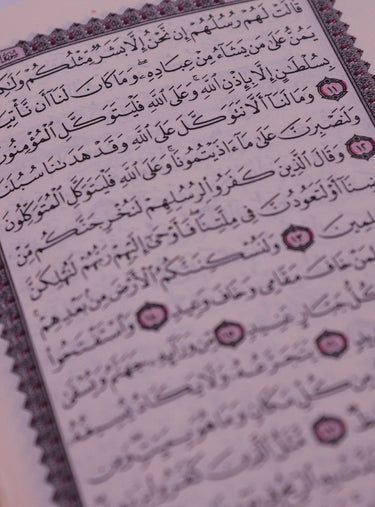 قَالَتْ لَهُمْ رُسُلُهُمْ إِن نَّحْنُ إِلَّا بَشَرٌ مِّثْلُكُمْ
يَمُنُّ عَلَىٰ مَن يَشَآءُ مِنْ عِبَادِهِۦ وَمَا كَانَ لَنَآ أَن
بِسُلْطَٰنٍ إِلَّا بِإِذْنِ ٱللَّهِ وَعَلَى ٱللَّهِ فَلْيَتَوَكَّلِ ٱلْمُؤْمِنُونَ
١١ وَمَا لَنَآ أَلَّا نَتَوَكَّلَ عَلَى ٱللَّهِ وَقَدْ هَدَىٰنَا سُبُلَنَا
وَلَنَصْبِرَنَّ عَلَىٰ مَآ ءَاذَيْتُمُونَا وَعَلَى ٱللَّهِ فَلْيَتَوَكَّلِ ٱلْمُتَوَكِّلُونَ
١٢ وَقَالَ ٱلَّذِينَ كَفَرُوا۟ لِرُسُلِهِمْ لَنُخْرِجَنَّكُم مِّنْ
أَوْ لَتَعُودُنَّ فِى مِلَّتِنَا فَأَوْحَىٰٓ إِلَيْهِمْ رَبُّهُمْ لَنُهْلِكَنَّ
١٣ وَلَنُسْكِنَنَّكُمُ ٱلْأَرْضَ مِنۢ بَعْدِهِمْ
لِمَنْ خَافَ مَقَامِى وَخَافَ وَعِيدِ ١٤ وَٱسْتَفْتَحُوا۟
كُلُّ جَبَّارٍ عَنِيدٍ ١٥ مِّن وَرَآئِهِۦ جَهَنَّمُ وَيُسْقَىٰ
١٦ يَتَجَرَّعُهُۥ وَلَا يَكَادُ يُسِيغُهُۥ
مِن كُلِّ مَكَانٍ وَمَا هُوَ بِمَيِّتٍ وَمِن
١٧ مَّثَلُ ٱلَّذِينَ كَفَرُوا۟